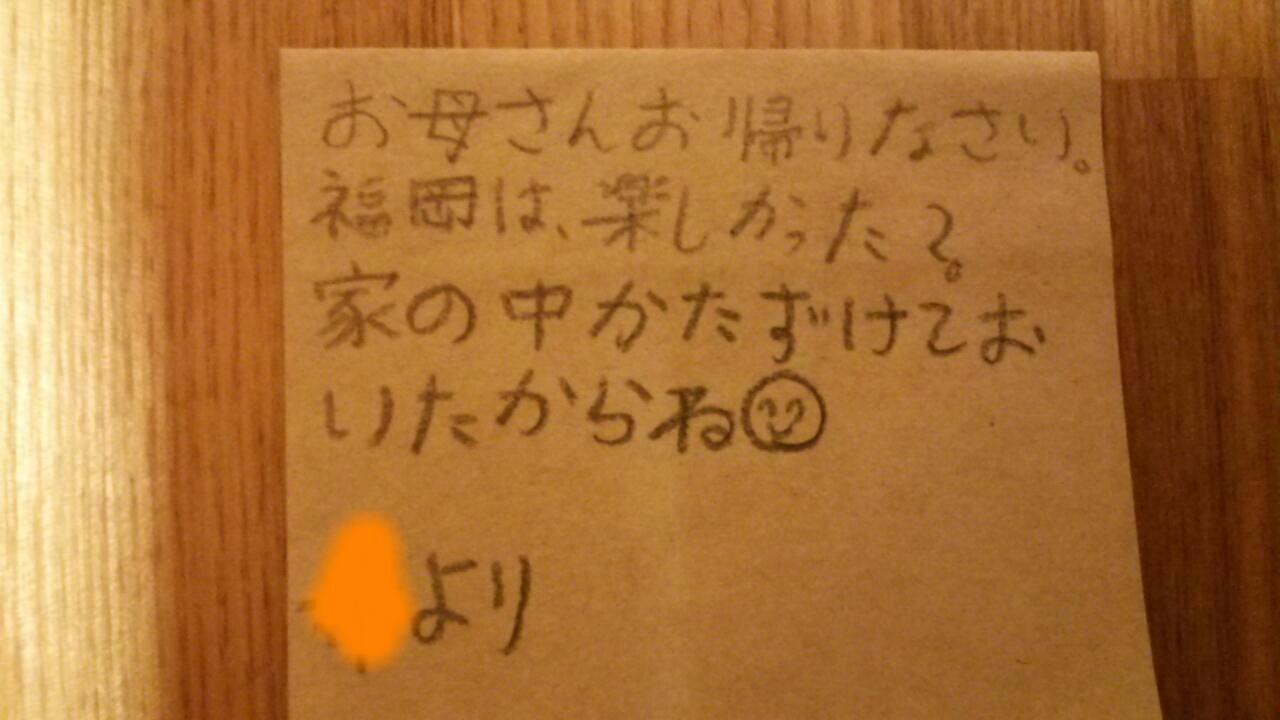 お母さんお帰りなさい。
福岡は、楽しかった?
家の中かたずけてお
いたからね
より